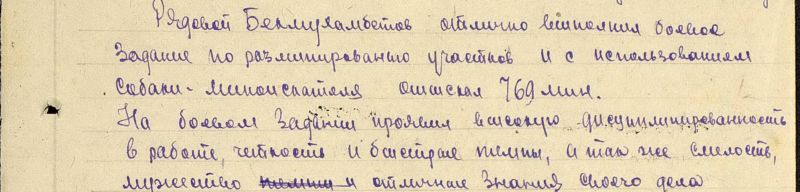 Рядовой Бекмухамбетов отлично выполнил боевое
задание по разминированию участков и с использованием
собаки-миноискателя отыскал 769 мин.
На боевом задании проявил высокую дисциплинированность
в работе, четкость и быстрые темпы, а так же смелость,
мужество темпы и отличные знания своего дела